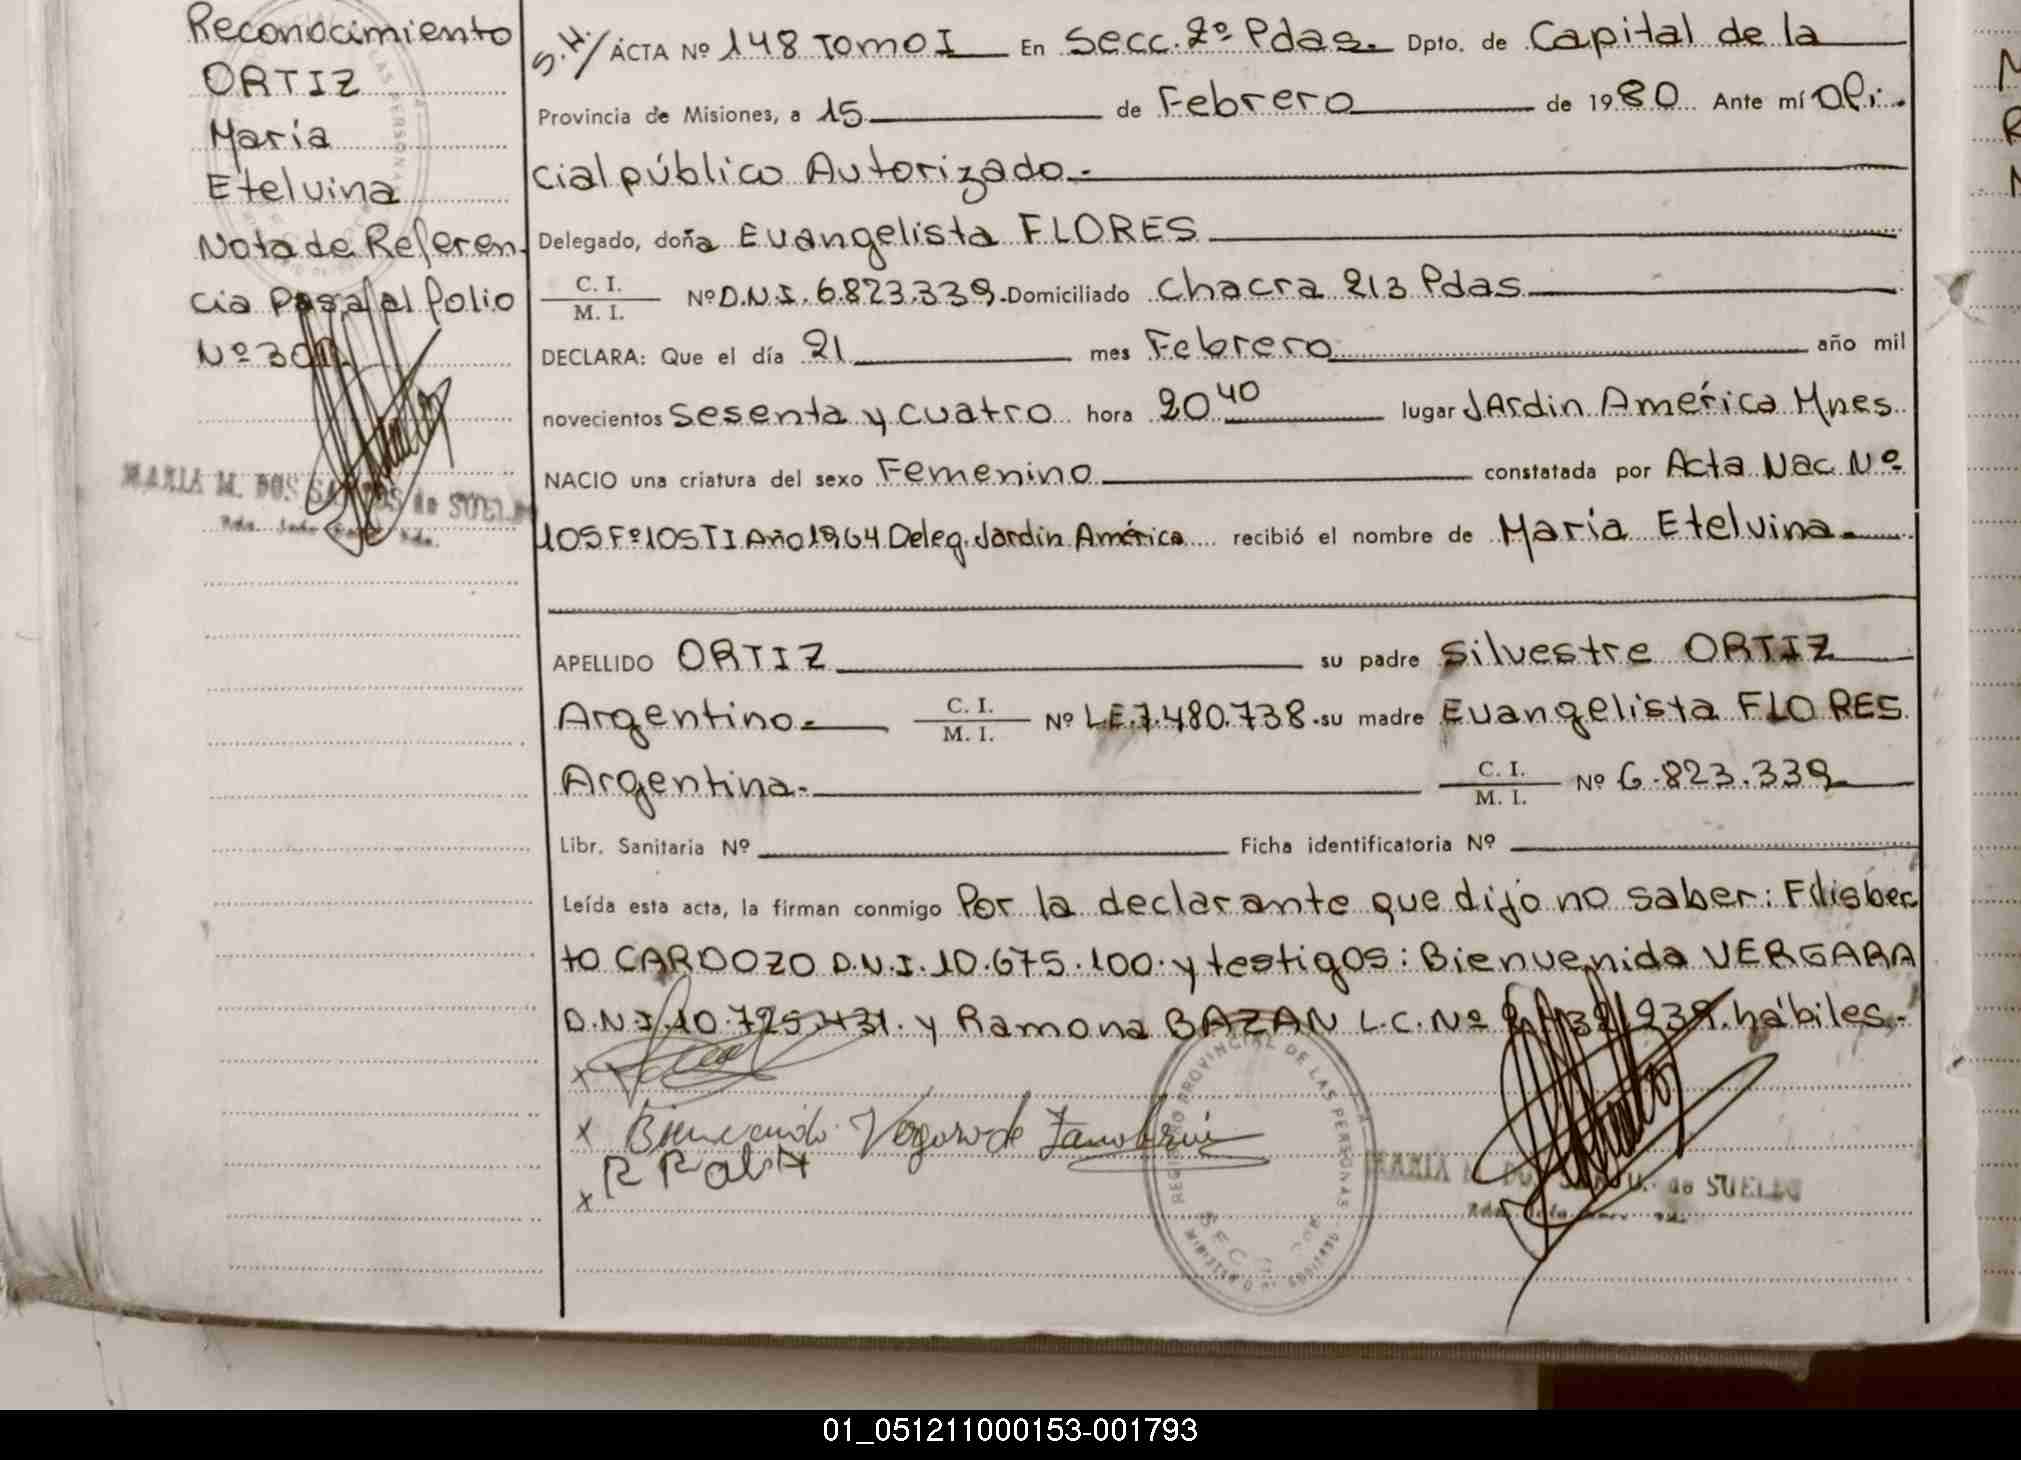 Reconocimiento
ORTIZ
María
Etelvina
Nota de Referen-
cia Pasa al folio
Nº
MARIA M. DOS SANTOS de SUELDO
S.H/ ACTA Nº 148 Tomo I En Secc. 2º Pdas. Dpto. de Capital de la
Provincia de Misiones, a 15 de Febrero de 1980 Ante mí Ofi-
cial público Autorizado.-
Delegado, doña Evangelista FLORES
C. I.
M. I. Nº D.N.I. 6.823.339. Domiciliado Chacra 213 Pdas
DECLARA: Que el día 21 mes Febrero año mil
novecientos Sesenta y cuatro hora 20 40 lugar Jardin América Mnes.
NACIO una criatura del sexo Femenino constatada por Acta Nac Nº
105 Fº 105 T I Año 1964 Deleg. Jardin América recibió el nombre de María Etelvina.-
APELLIDO ORTIZ su padre Silvestre ORTIZ
Argentino.- C. I.
M. I. Nº L.E. 7.480.738. su madre Evangelista FLORES
Argentina.- C. I.
M. I. Nº 6.823.339
Libr. Sanitaria Nº Ficha identificatoria Nº
Leída esta acta, la firman conmigo Por la declarante que dijo no saber: Filisber
to CARDOZO D.N.I. 10.675.100. y testigos: Bienvenida VERGARA
D.N.I. 10.725.431. y Ramona BAZAN L.C. Nº hábiles.-
x
x Bienvenida Vergara de
x
REGISTRO PROVINCIAL DE LAS PERSONAS
de SUELDO
01_051211000153-001793